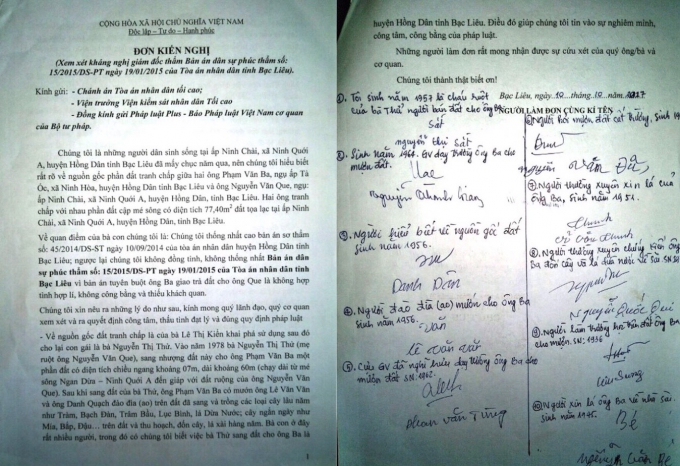 CỘNG HÒA XÃ HỘI CHỦ NGHĨA VIỆT NAM
Độc lập – Tự do – Hạnh phúc
ĐƠN KIẾN NGHỊ
(Xem xét kháng nghị giám đốc thẩm Bản án dân sự phúc thẩm số:
15/2015/DS-PT ngày 19/01/2015 của Tòa án nhân dân tỉnh Bạc Liêu).
Kính gửi: - Chánh án Tòa án nhân dân tối cao;
- Viện trưởng Viện kiểm sát nhân dân Tối cao
- Đồng kính gửi Pháp luật Plus - Báo Pháp luật Việt Nam cơ quan
của Bộ tư pháp.
Chúng tôi là những người dân sinh sống tại ấp Ninh Chài, xã Ninh Quới
A, huyện Hồng Dân tỉnh Bạc Liêu đã mấy chục năm qua, nên chúng tôi hiểu biết
rất rõ về nguồn gốc phần đất tranh chấp giữa hai ông Phạm Văn Ba, ngụ ấp Tà
Óc, xã Ninh Hòa, huyện Hồng Dân tỉnh Bạc Liêu và ông Nguyễn Văn Que, ngụ:
ấp Ninh Chài, xã Ninh Quới A, huyện Hồng Dân, tỉnh Bạc Liêu. Hai ông tranh
chấp với nhau phần đất cặp mé sông có diện tích 77,40m² đất tọa lạc tại ấp Ninh
Chài, xã Ninh Quới A, huyện Hồng Dân, tỉnh Bạc Liêu.
Về quan điểm của bà con chúng tôi là: Chúng tôi thống nhất cao bản án sơ thẩm
số 45/2014/DS-ST ngày 10/09/2014 của tòa án nhân dân huyện Hồng Dân tỉnh Bạc
Liêu; ngược lại chúng tôi không đồng tình, không thống nhất Bản án dân
sự phúc thẩm số: 15/2015/DS-PT ngày 19/01/2015 của Tòa án nhân dân tỉnh
Bạc Liêu vì bản án tuyên buộc ông Ba giao trả đất cho ông Que là không hợp
tình hợp lí, không công bằng và thiếu khách quan.
Chúng tôi xin nêu ra những lý do như sau, kính mong quý lãnh đạo, quý cơ quan
xem xét và ra quyết định công tâm, thấu tình đạt lý và đúng quy định pháp luật
- Về nguồn gốc đất tranh chấp là của bà Lê Thị Kiến khai phá sử dụng sau đó
để lại cho con gái là bà Nguyễn Thị Thứ. Vào năm 1978 bà Nguyễn Thị Thứ (mẹ
ruột ông Nguyễn Văn Que), sang nhượng đất này cho ông Phạm Văn Ba một
phần đất có diện tích chiều ngang khoảng 07m, dài khoảng 60m (chạy dài từ mé
sông Ngan Dừa – Ninh Quới A đến giáp với đất ruộng của ông Nguyễn Văn
Que). Sau khi sang đất của bà Thứ, ông Phạm Văn Ba có mướn ông Lê Văn Văn
và ông Danh Quạch đào đìa (ao) trên đất đã sang và trồng các loại cây lâu năm
như Tràm, Bạch Đàn, Trâm Bầu, Lục Bình, lá Dừa Nước; cây ngắn ngày như
Mía, Bắp, Đậu... trên đất và thu hoạch, đốn cây, lá xài hàng năm. Bà con ở đây
rất nhiều người, trong đó có chúng tôi biết việc bà Thứ sang đất cho ông Ba là
1
huyện Hồng Dân tỉnh Bạc Liêu. Điều đó giúp chúng tôi tin vào sự nghiêm minh,
công tâm, công bằng của pháp luật.
Những người làm đơn rất mong nhận được sự cứu xét của quý ông/bà và
cơ quan.
Chúng tôi thành thật biết ơn!
Bạc Liêu, ngày 10 tháng 10 năm 2017
NGƯỜI LÀM ĐƠN CÙNG KÍ TÊN
①. Tôi sinh năm 1957 là cháu ruột
của bà Thứ người bán đất cho ông Ba
Sắt
nguyễn thị sắt
②. Sinh năm 1966. GV dạy trường ông Ba cho
mượn đất.
③. Người hiểu biết về nguồn gốc đất
sinh năm 1956.
Danh Dân
④. Người đào đìa (ao) mướn cho ông Ba
Sinh năm 1956.
Văn
Lê văn
⑤. Cựu GV đã nghỉ hưu dạy trường ông Ba cho
mượn đất. SN: 1962.
phan văn Tùng
⑥ Người hỏi mượn đất cất trường, Sinh
nguyễn Văn
⑦. Người thường xuyên xin lá của
ông Ba, Sinh năm 1951.
⑧. Người thường xuyên chứng kiến ông
Ba đốn cây và lá dừa nước về xài SN:
Nguyễn Quốc
⑨. Người làm trường học trên đất ông Ba
cho mượn. SN: 1956
⑩ Người xin lá ông Ba về nhà xài.
sinh năm 1945.
Bé